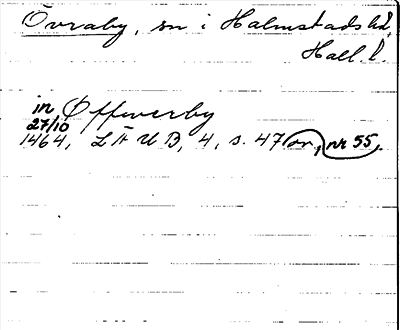 Övraby, sn i Halmstads hd,
Hall. l.
in Øffwerby
27/10
1464, LÄUB, 4, s. 47 or, nr 55,